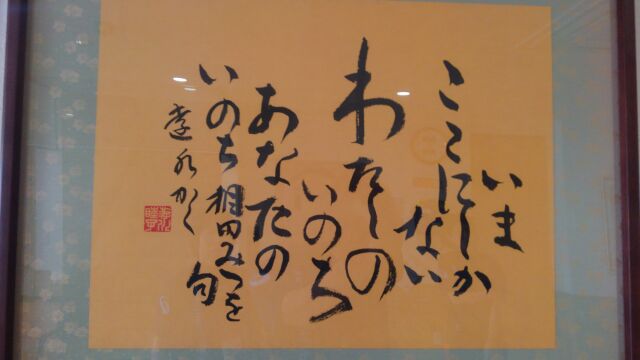 いま
ここにしか
ない
わたしの
いのち
あなたの
いのち 相田みつを
句
かく